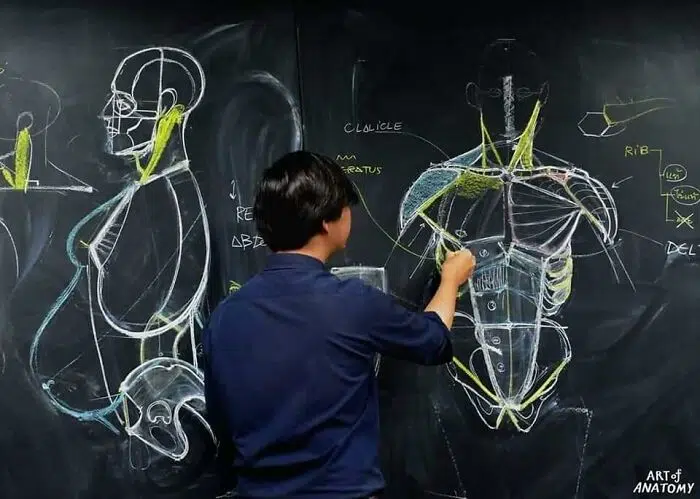 CLALICLE
ERATUS
RE
ABD
RIB
DEL
ART of
ANATOMY